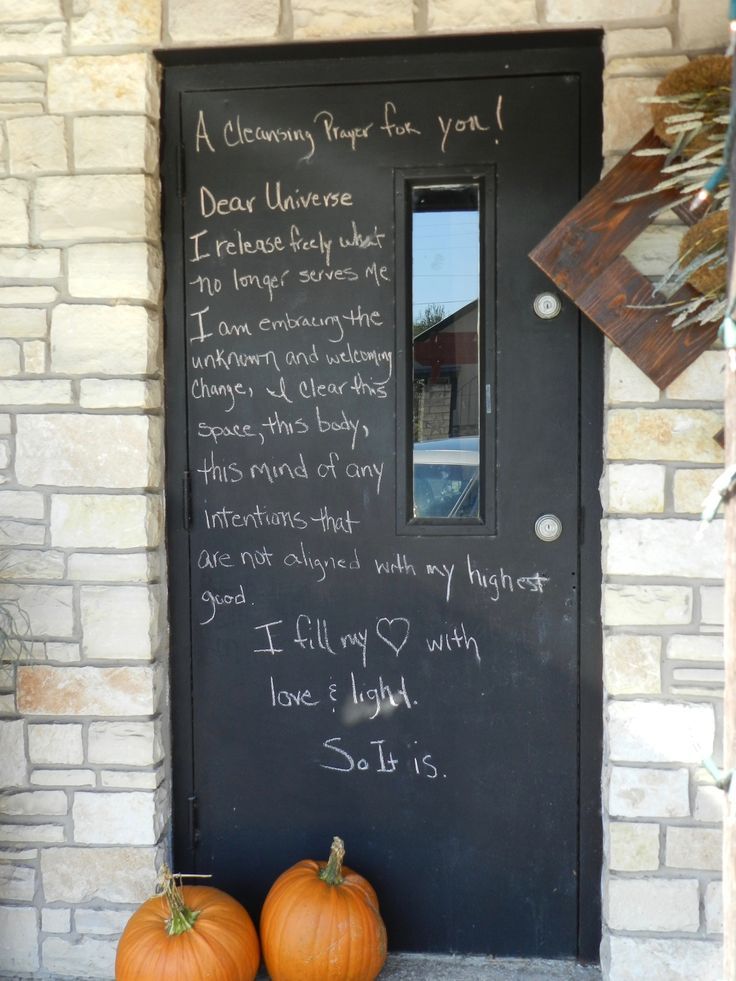 A Cleansing Prayer for you!
Dear Universe
I release freely what
no longer serves me
I am embracing the
unknown and welcoming
Change, I Clear this
space, this body,
this mind of any
intentions that
are not aligned with my highest
good.
I fill my ♡ with
love & light.
So It is.